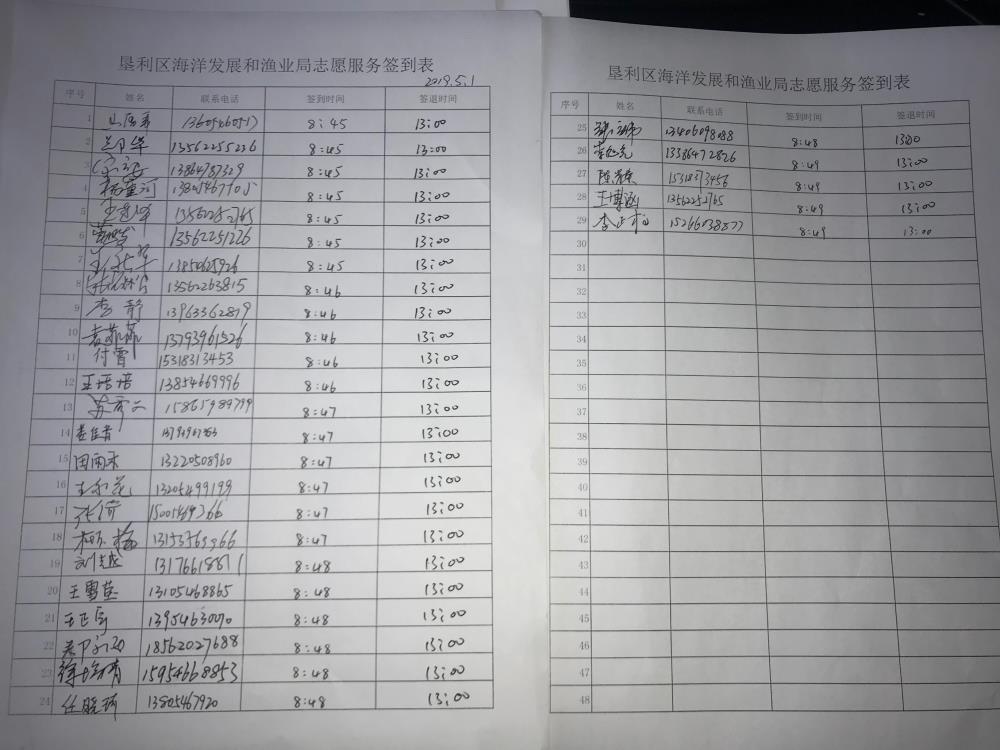 垦利区海洋发展和渔业局志愿服务签到表
2019.5.1
序号 姓名 联系电话 签到时间 签退时间
1 8:45 13:00
2 13562255226 8:45 13:00
3 13864787329 8:45 13:00
4 杨星河 8:45 13:00
5 13562252765 8:45 13:00
6 13562251226 8:45 13:00
7 8:45 13:00
8 13562263815 8:46 13:00
9 李静 13963362879 8:46 13:00
10 袁菲菲 13793961526 8:46 13:00
11 付雪 15318313453 8:46 13:00
12 王培培 13854669996 8:46 13:00
13 15865989799 8:47 13:00
14 8:47 13:00
15 田雨禾 13220508960 8:47 13:00
16 13205499199 8:47 13:00
17 8:47 13:00
18 13153769966 8:47 13:00
19 刘越 13176618871 8:48 13:00
20 王雪莹 13105468865 8:48 13:00
21 8:48 13:00
22 18562027688 8:48 13:00
23 15954668853 8:48 13:00
24 任晓琦 13805467920 8:48 13:00
垦利区海洋发展和渔业局志愿服务签到表
序号 姓名 联系电话 签到时间 签退时间
25 13406098088 8:48 13:00
26 13386472826 8:49 13:00
27 8:49 13:00
28 王博涵 13562252765 8:49 13:00
29 15266038877 8:49 13:00
30
31
32
33
34
35
36
37
38
39
40
41
42
43
44
45
46
47
48